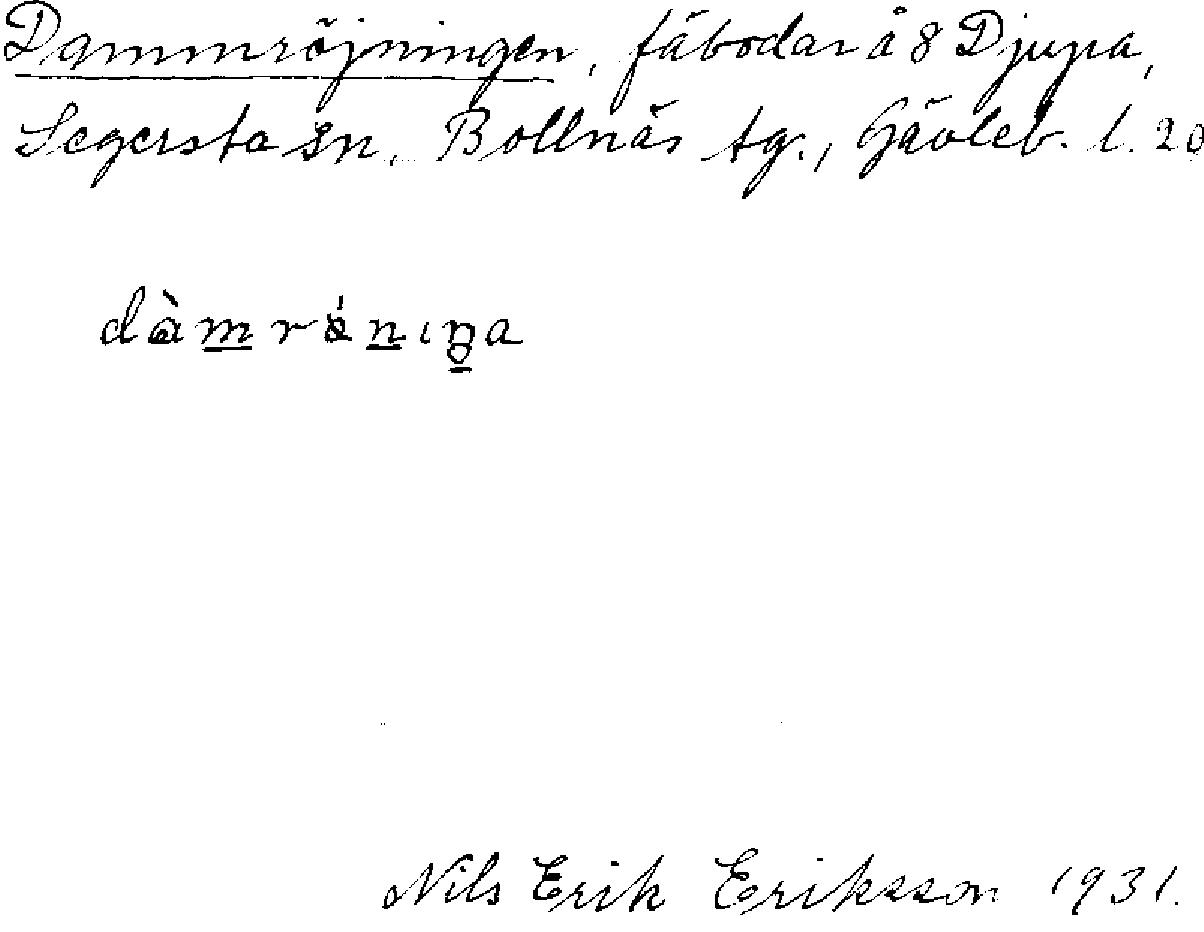 Dammröjningen, fäbodar å 8 Djupa,
Segersta sn, Bollnäs tg., Gävleb. l. 20
Nils Erik Eriksson 1931.